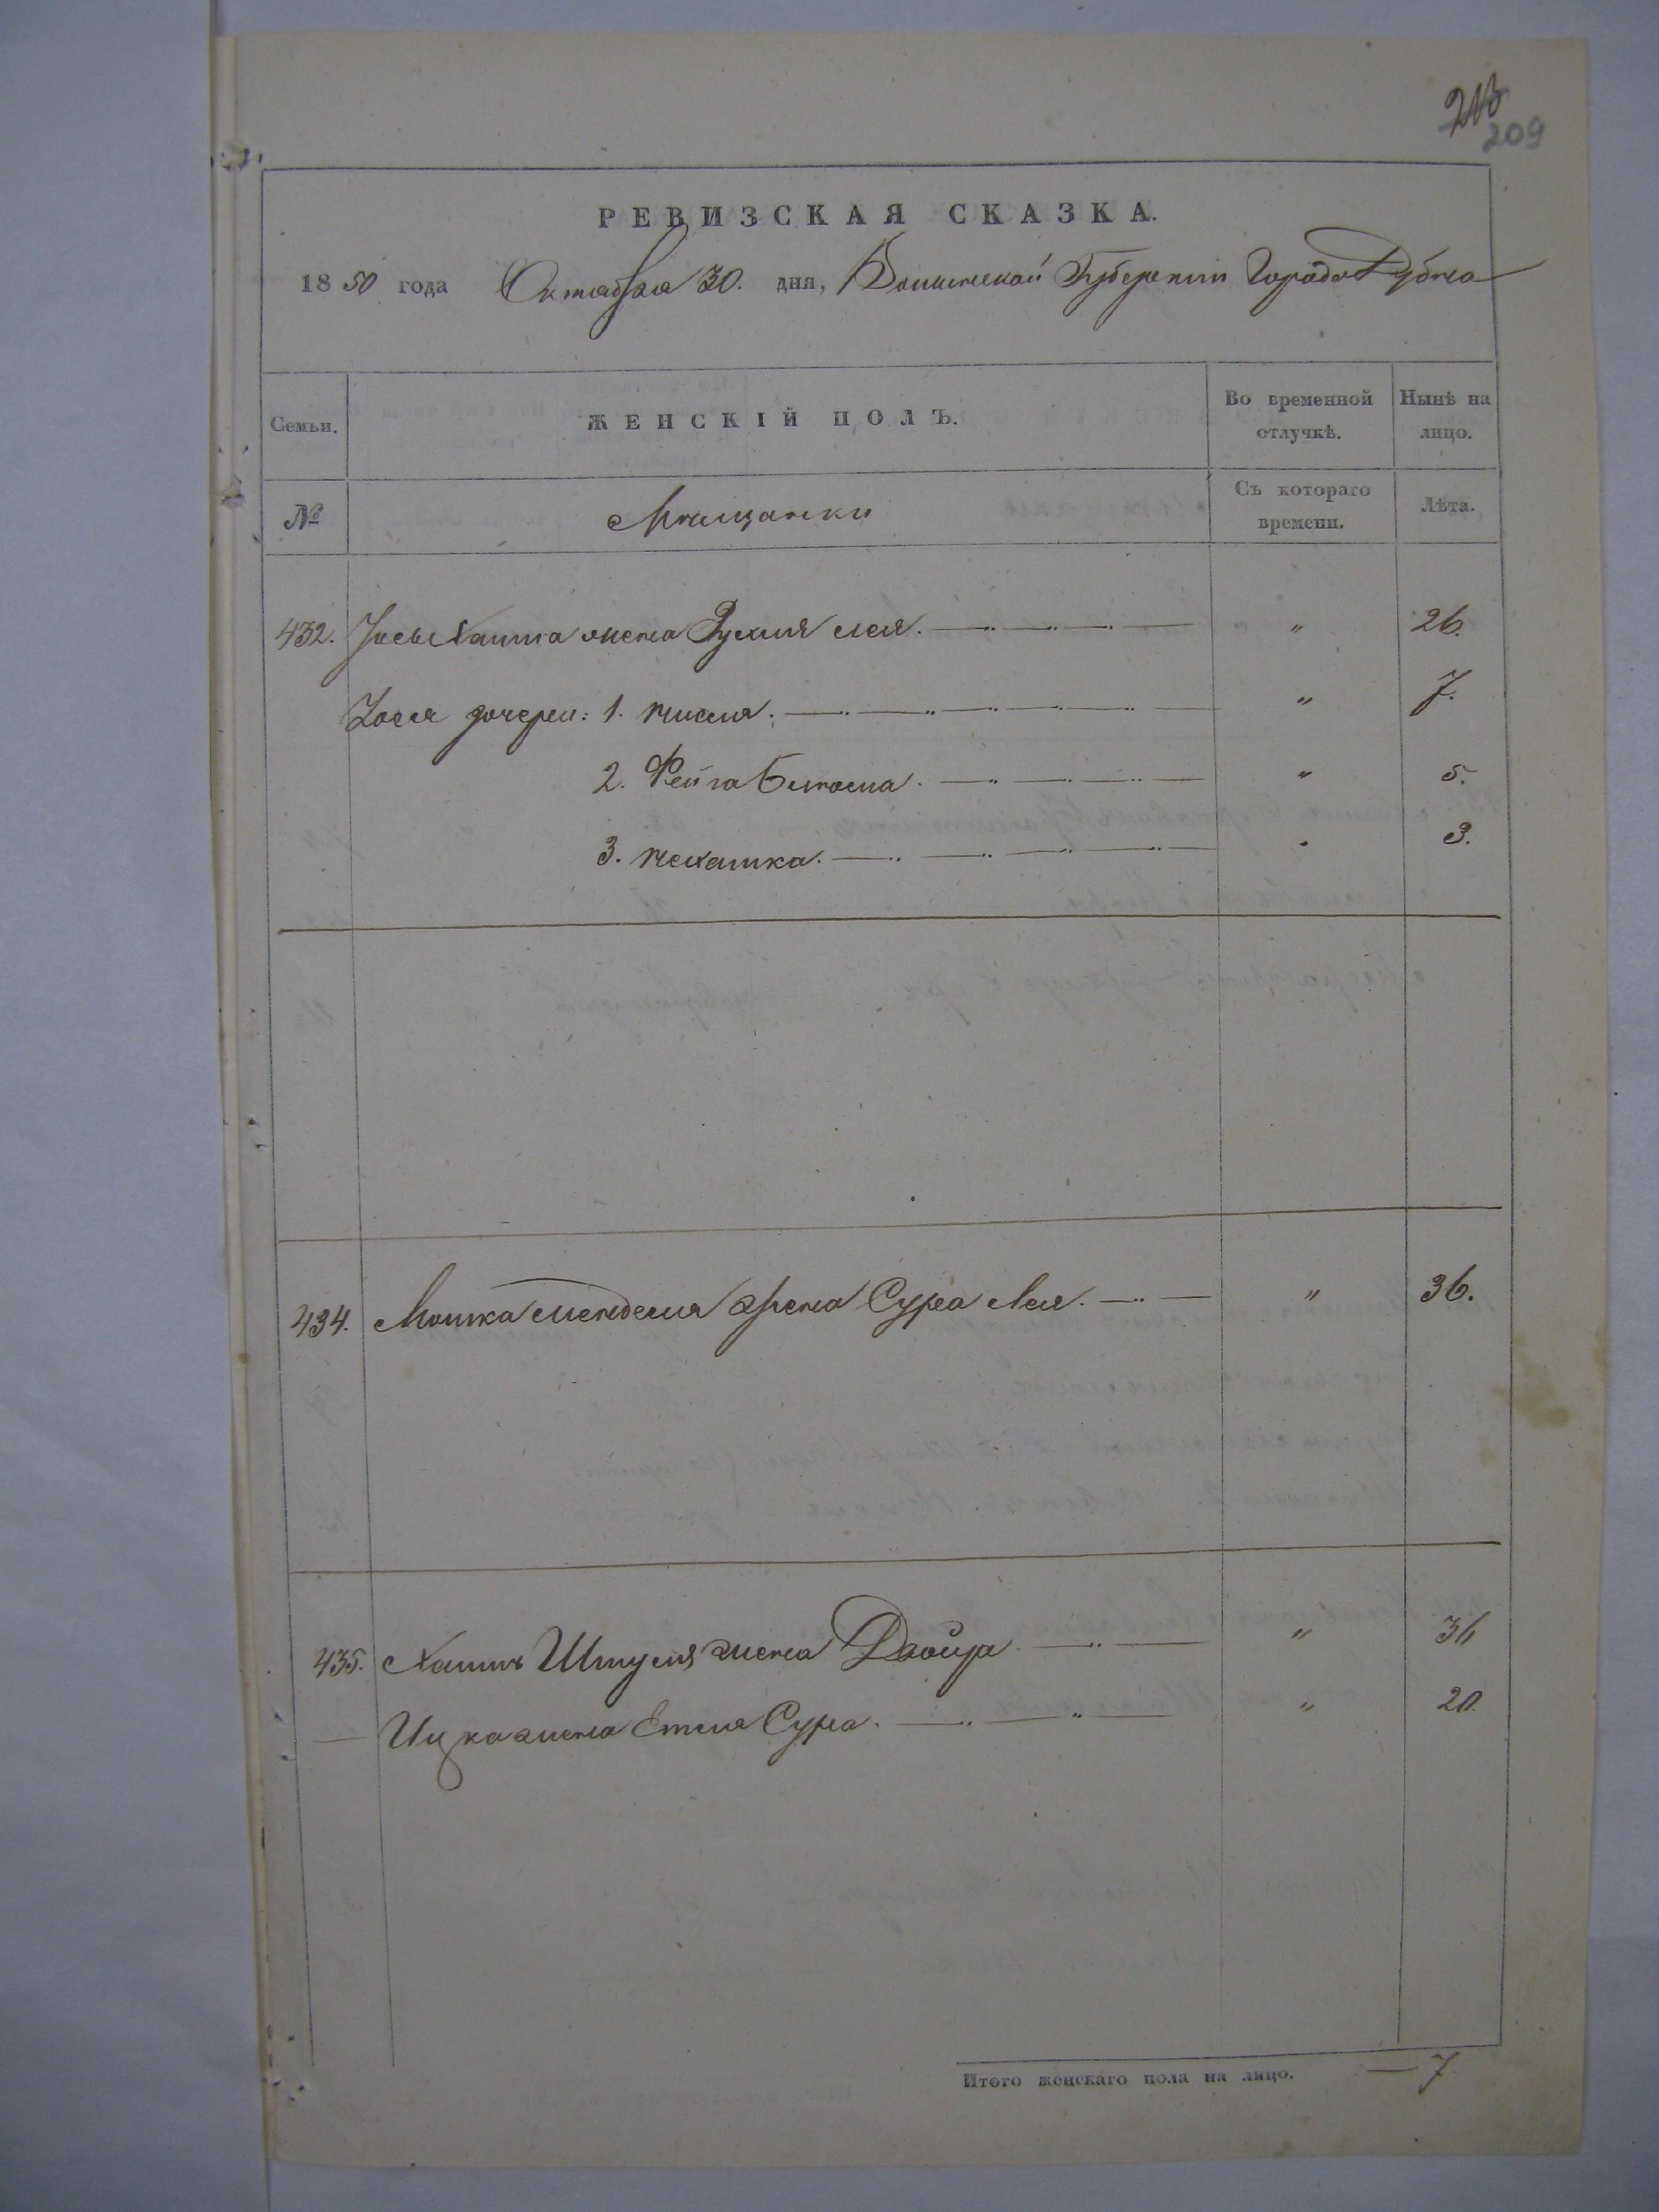 213
209
РЕВИЗСКАЯ СКАЗКА.
1850 года Октября 30. дня, Волынской Губернии Города Дубна
Семьи.
ЖЕНСКІЙ ПОЛЪ.
Во временной отлучкѣ.
Нынѣ на лицо.
№
Мѣщанки
Съ котораго времени.
Лѣта.
432. Жена Рухля Лея. „ 26.
дочери: 1. „ 7.
2. Фейга „ 5.
3. „ 3.
434. Мошка Менделя жена Сура Лея. „ 36.
435. Хаима Шмуля жена Двойра „ 36
— Ицка жена Етля Сура. „ 20.
Итого женскаго пола на лицо. — 7